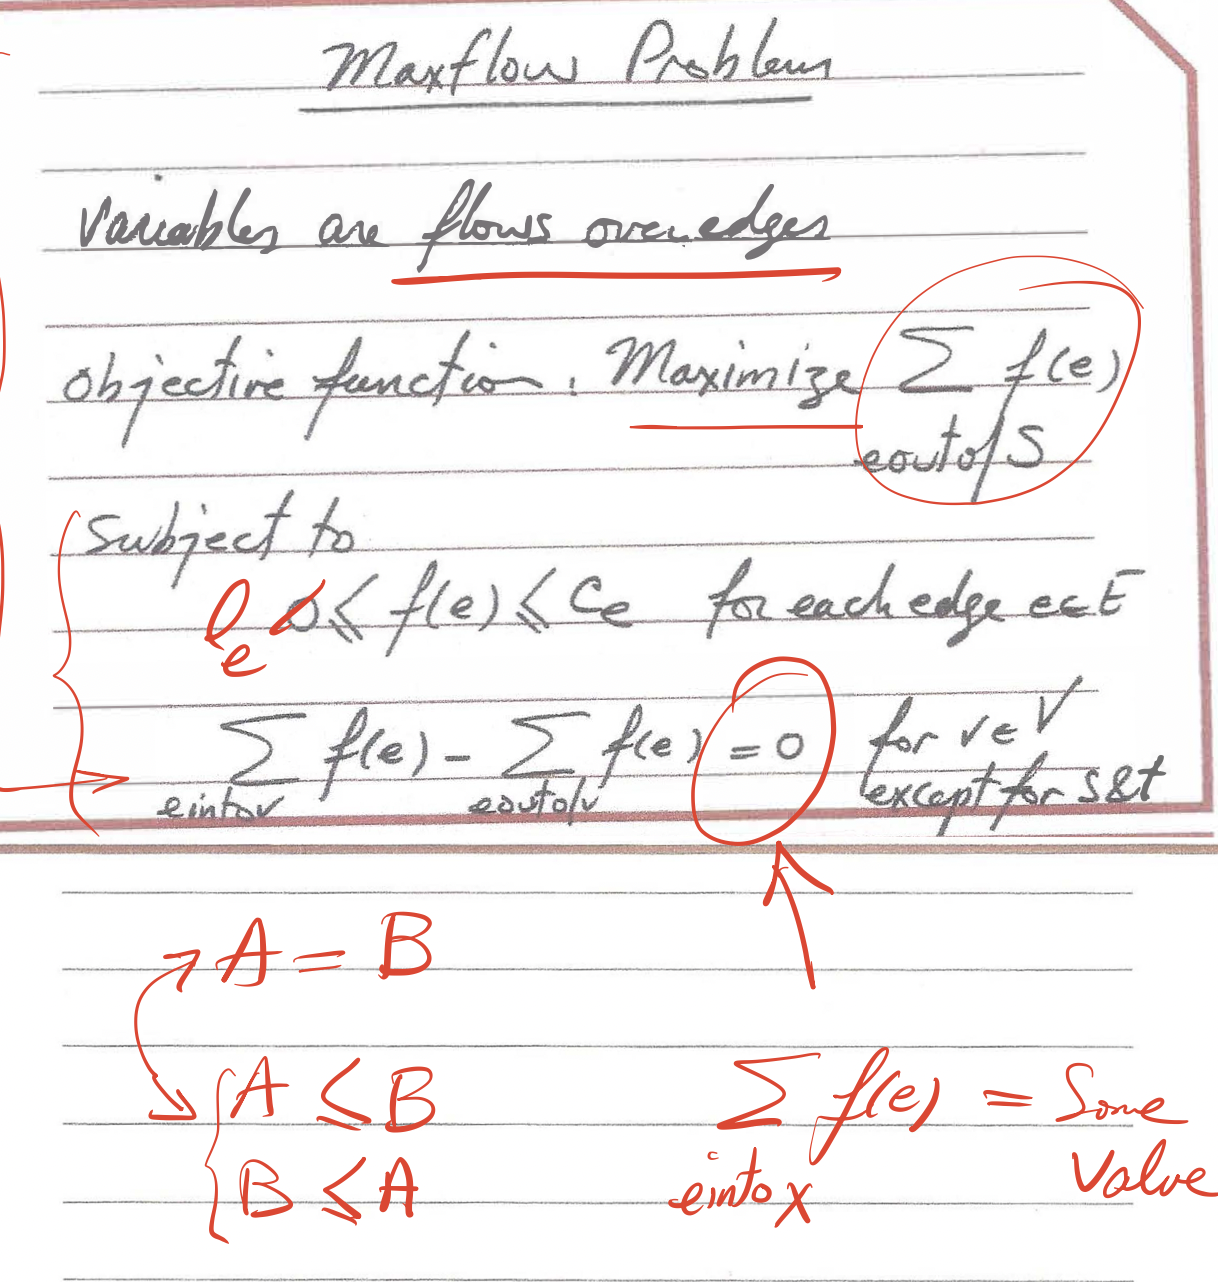 Maxflow Problem
Variables are flows over edges
Objective function: Maximize ∑ f(e)
e out of S
Subject to
l_e 0 ≤ f(e) ≤ C_e for each edge e ∈ E
∑ f(e) - ∑ f(e) = 0 for v ∈ V
e into v e out of v except for S & t
A = B
A ≤ B
B ≤ A
∑ f(e) = Some
e into x Value